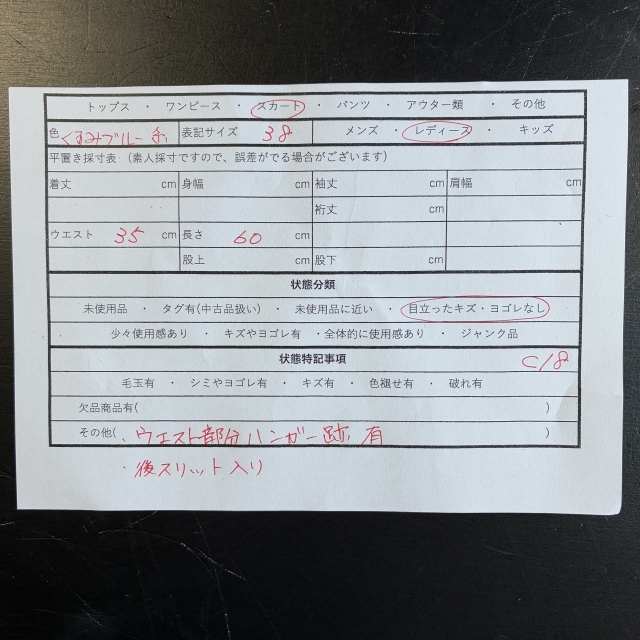 トップス ・ ワンピース ・ スカート ・ パンツ ・ アウター類 ・ その他
色 くすみブルー系 表記サイズ 38 メンズ ・ レディース ・ キッズ
平置き採寸表 (素人採寸ですので、誤差がでる場合がございます)
着丈 cm 身幅 cm 袖丈 cm 肩幅 cm
裄丈 cm
ウエスト 35 cm 長さ 60 cm cm
股上 cm 股下 cm
状態分類
未使用品 ・ タグ有(中古品扱い) ・ 未使用に近い ・ 目立ったキズ・ヨゴレなし
少々使用感あり ・ キズやヨゴレ有 ・全体的に使用感あり ・ ジャンク品
状態特記事項 C18
毛玉有 ・ シミやヨゴレ有 ・ キズ有 ・ 色褪せ有 ・ 破れ有
欠品商品有( )
その他( ・ウエスト部分ハンガー跡有 )
・後スリット入り